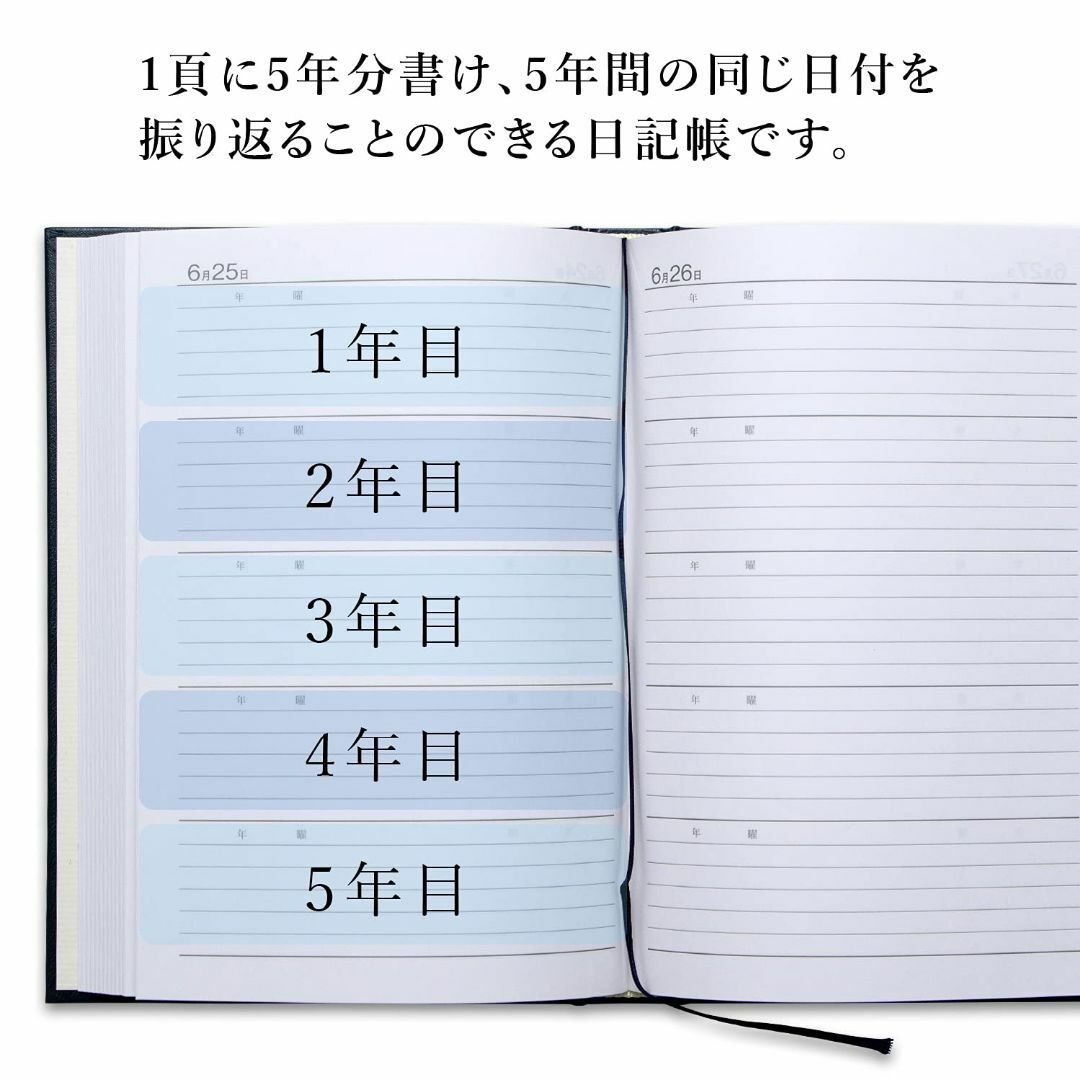 1頁に5年分書け、5年間の同じ日付を
振り返ることのできる日記帳です。
6月25日
年 曜
1年目
年 曜
2年目
年 曜
3年目
年 曜
4年目
年 曜
5年目
6月26日
年 曜
年 曜
年 曜
年 曜
年 曜